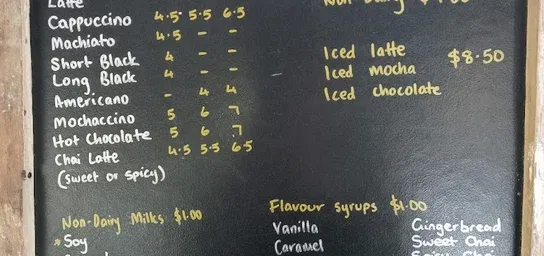 Latte
Cappuccino 4.5 5.5 6.5
Machiato 4.5 - -
Short Black 4 - -
Long Black 4 - -
Americano - 4 4
Mochaccino 5 6 7
Hot Chocolate 5 6 .7
Chai Latte 4.5 5.5 6.5
(sweet or spicy)
Non-Dairy Milks $1.00
*Soy
Non-Dairy
Iced latte
Iced mocha $8.50
Iced chocolate
Flavour syrups $1.00
Vanilla
Caramel
Gingerbread
Sweet Chai
Spicy Chai